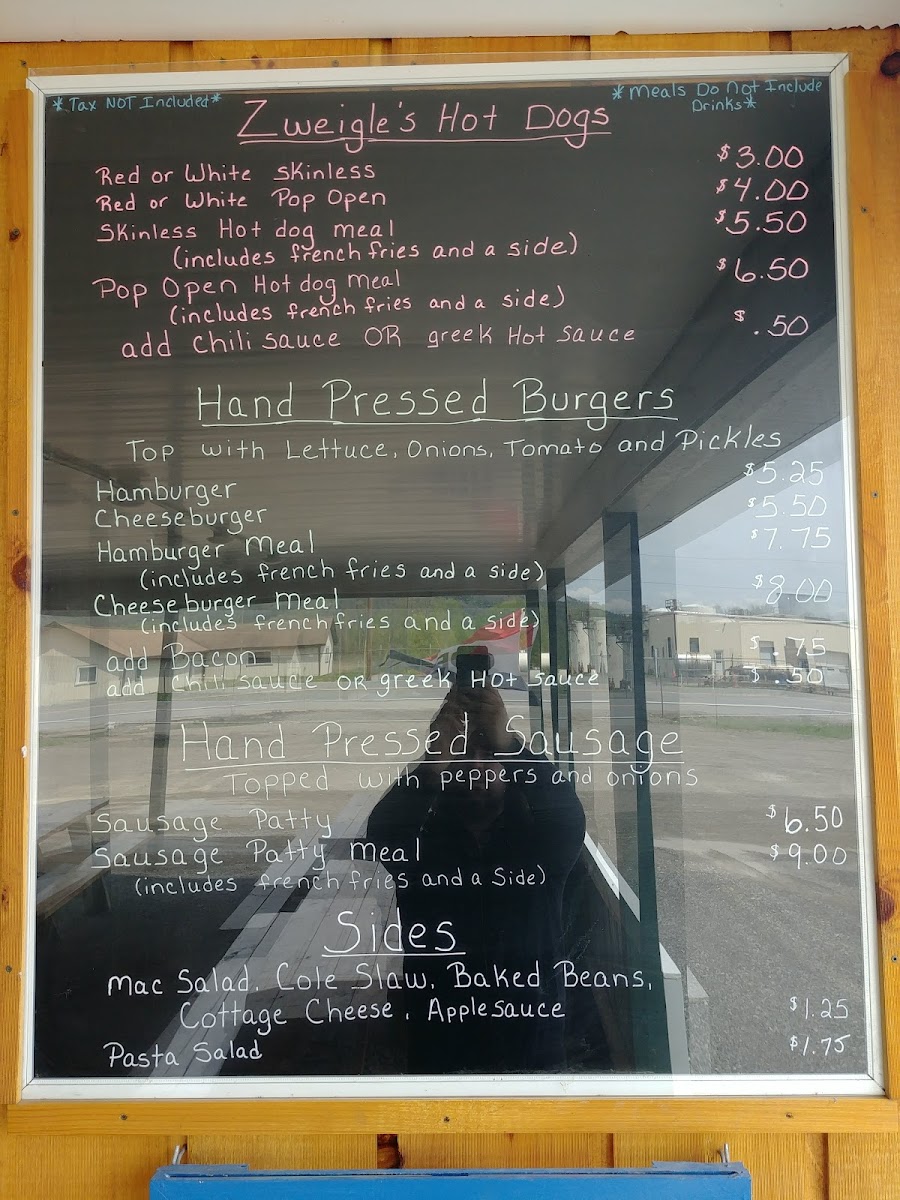 *Tax NOT Included*
*Meals Do Not Include Drinks*
Zweigle's Hot Dogs
Red or White Skinless $3.00
Red or White Pop Open $4.00
Skinless Hot dog meal $5.50
(includes french fries and a side)
Pop Open Hot dog meal $6.50
(includes french fries and a side)
add Chili sauce OR greek Hot Sauce $.50
Hand Pressed Burgers
Top with Lettuce, Onions, Tomato and Pickles
Hamburger $5.25
Cheeseburger $5.50
Hamburger Meal $7.75
(includes french fries and a side)
Cheeseburger Meal $8.00
(includes french fries and a side)
add Bacon $.75
add Chili sauce OR greek Hot Sauce $.50
Hand Pressed Sausage
Topped with peppers and onions
Sausage Patty $6.50
Sausage Patty meal $9.00
(includes french fries and a Side)
Sides
Mac Salad, Cole Slaw, Baked Beans,
Cottage Cheese, Applesauce $1.25
Pasta Salad $1.75